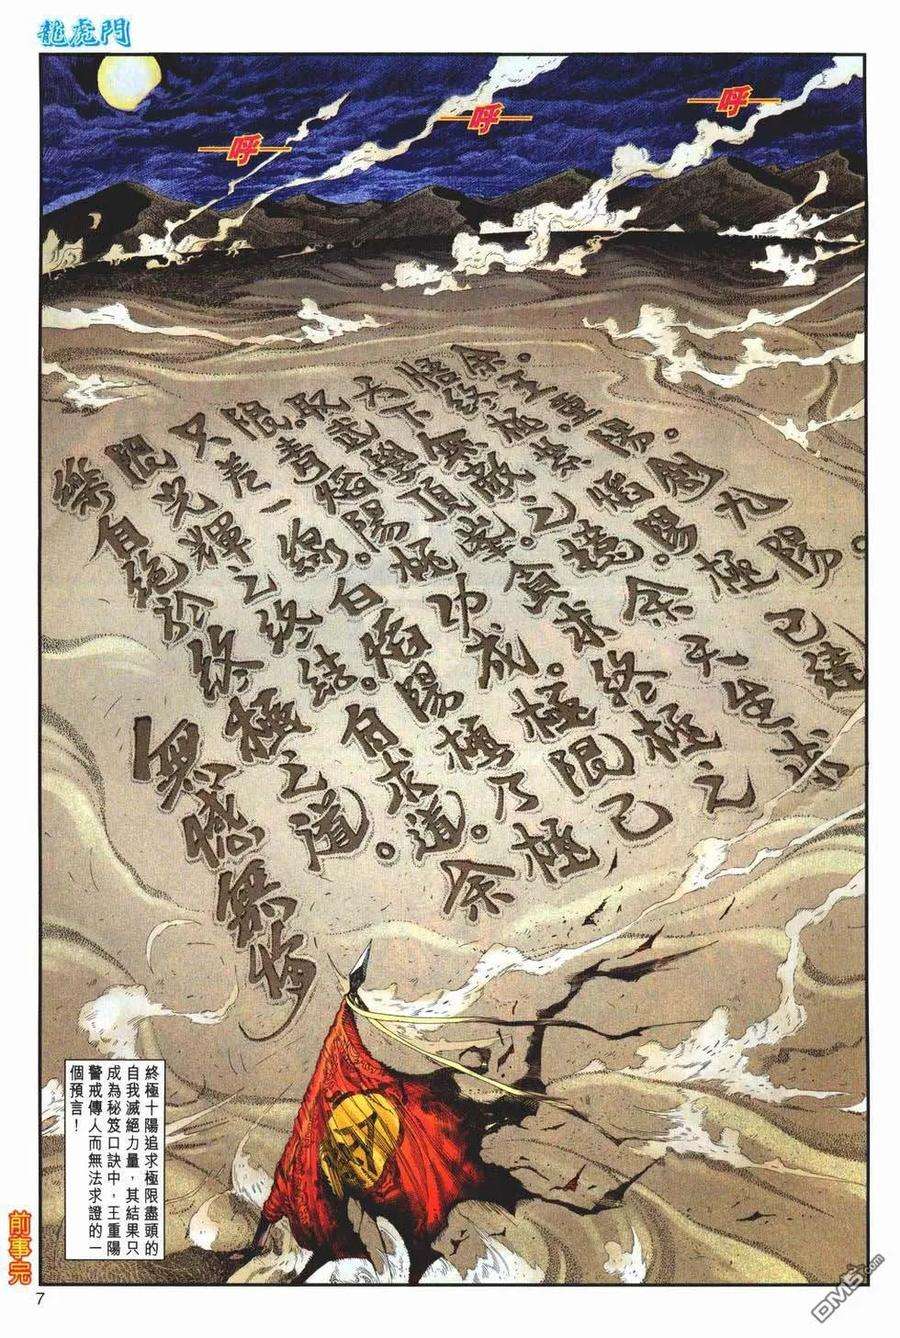 龍虎門
呼
呼
呼
余。王重陽。創九陽。
悟終極紫焰陽極已達
天下無敵之境余天生求
取武學頂峯。貪求終極之
限。青焰陽。極功成。極限己
只差一線。白焰陽極乃極
限光輝之終結。自求道。余
樂自絕於終極之道。
無憾無悔
終極十陽追求極限盡頭的
自我滅絕力量，其結果只
成為秘笈口訣中，王重陽
警戒傳人而無法求證的一
個預言！
前事元
7
DM5.com